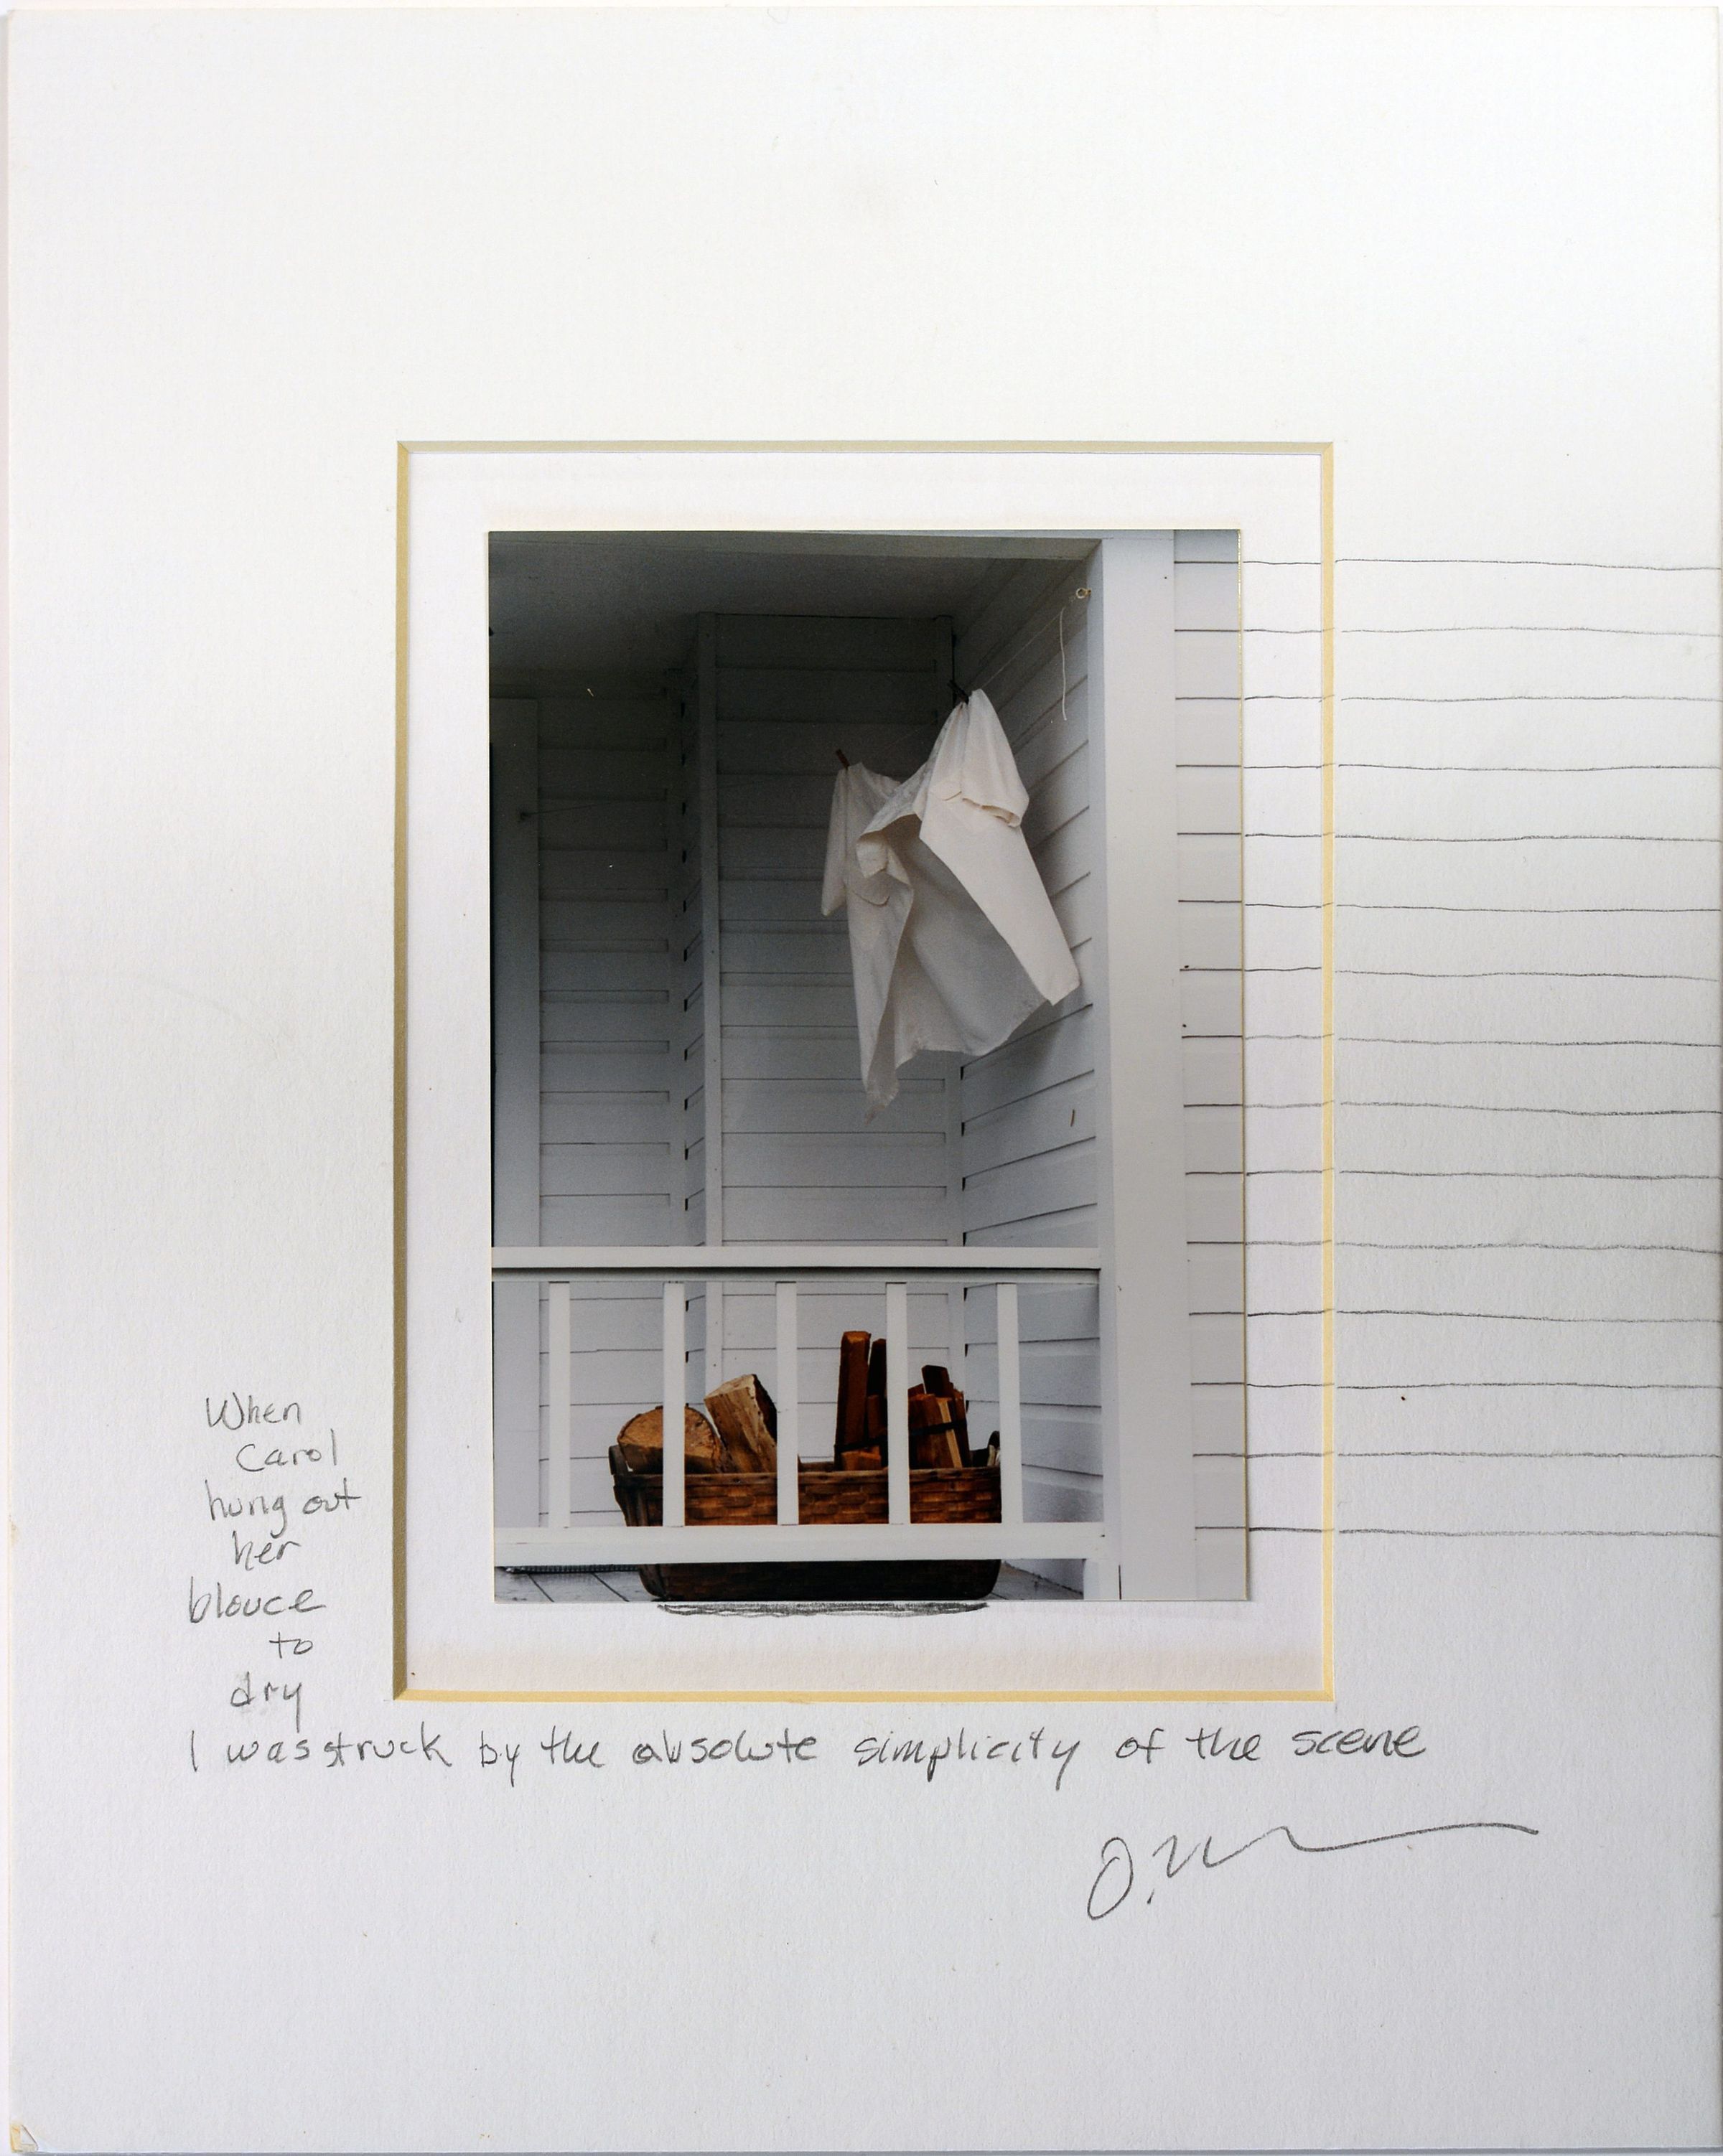 When
Carol
hung out
her
blouce
to
dry
I was struck by the absolute simplicity of the scene